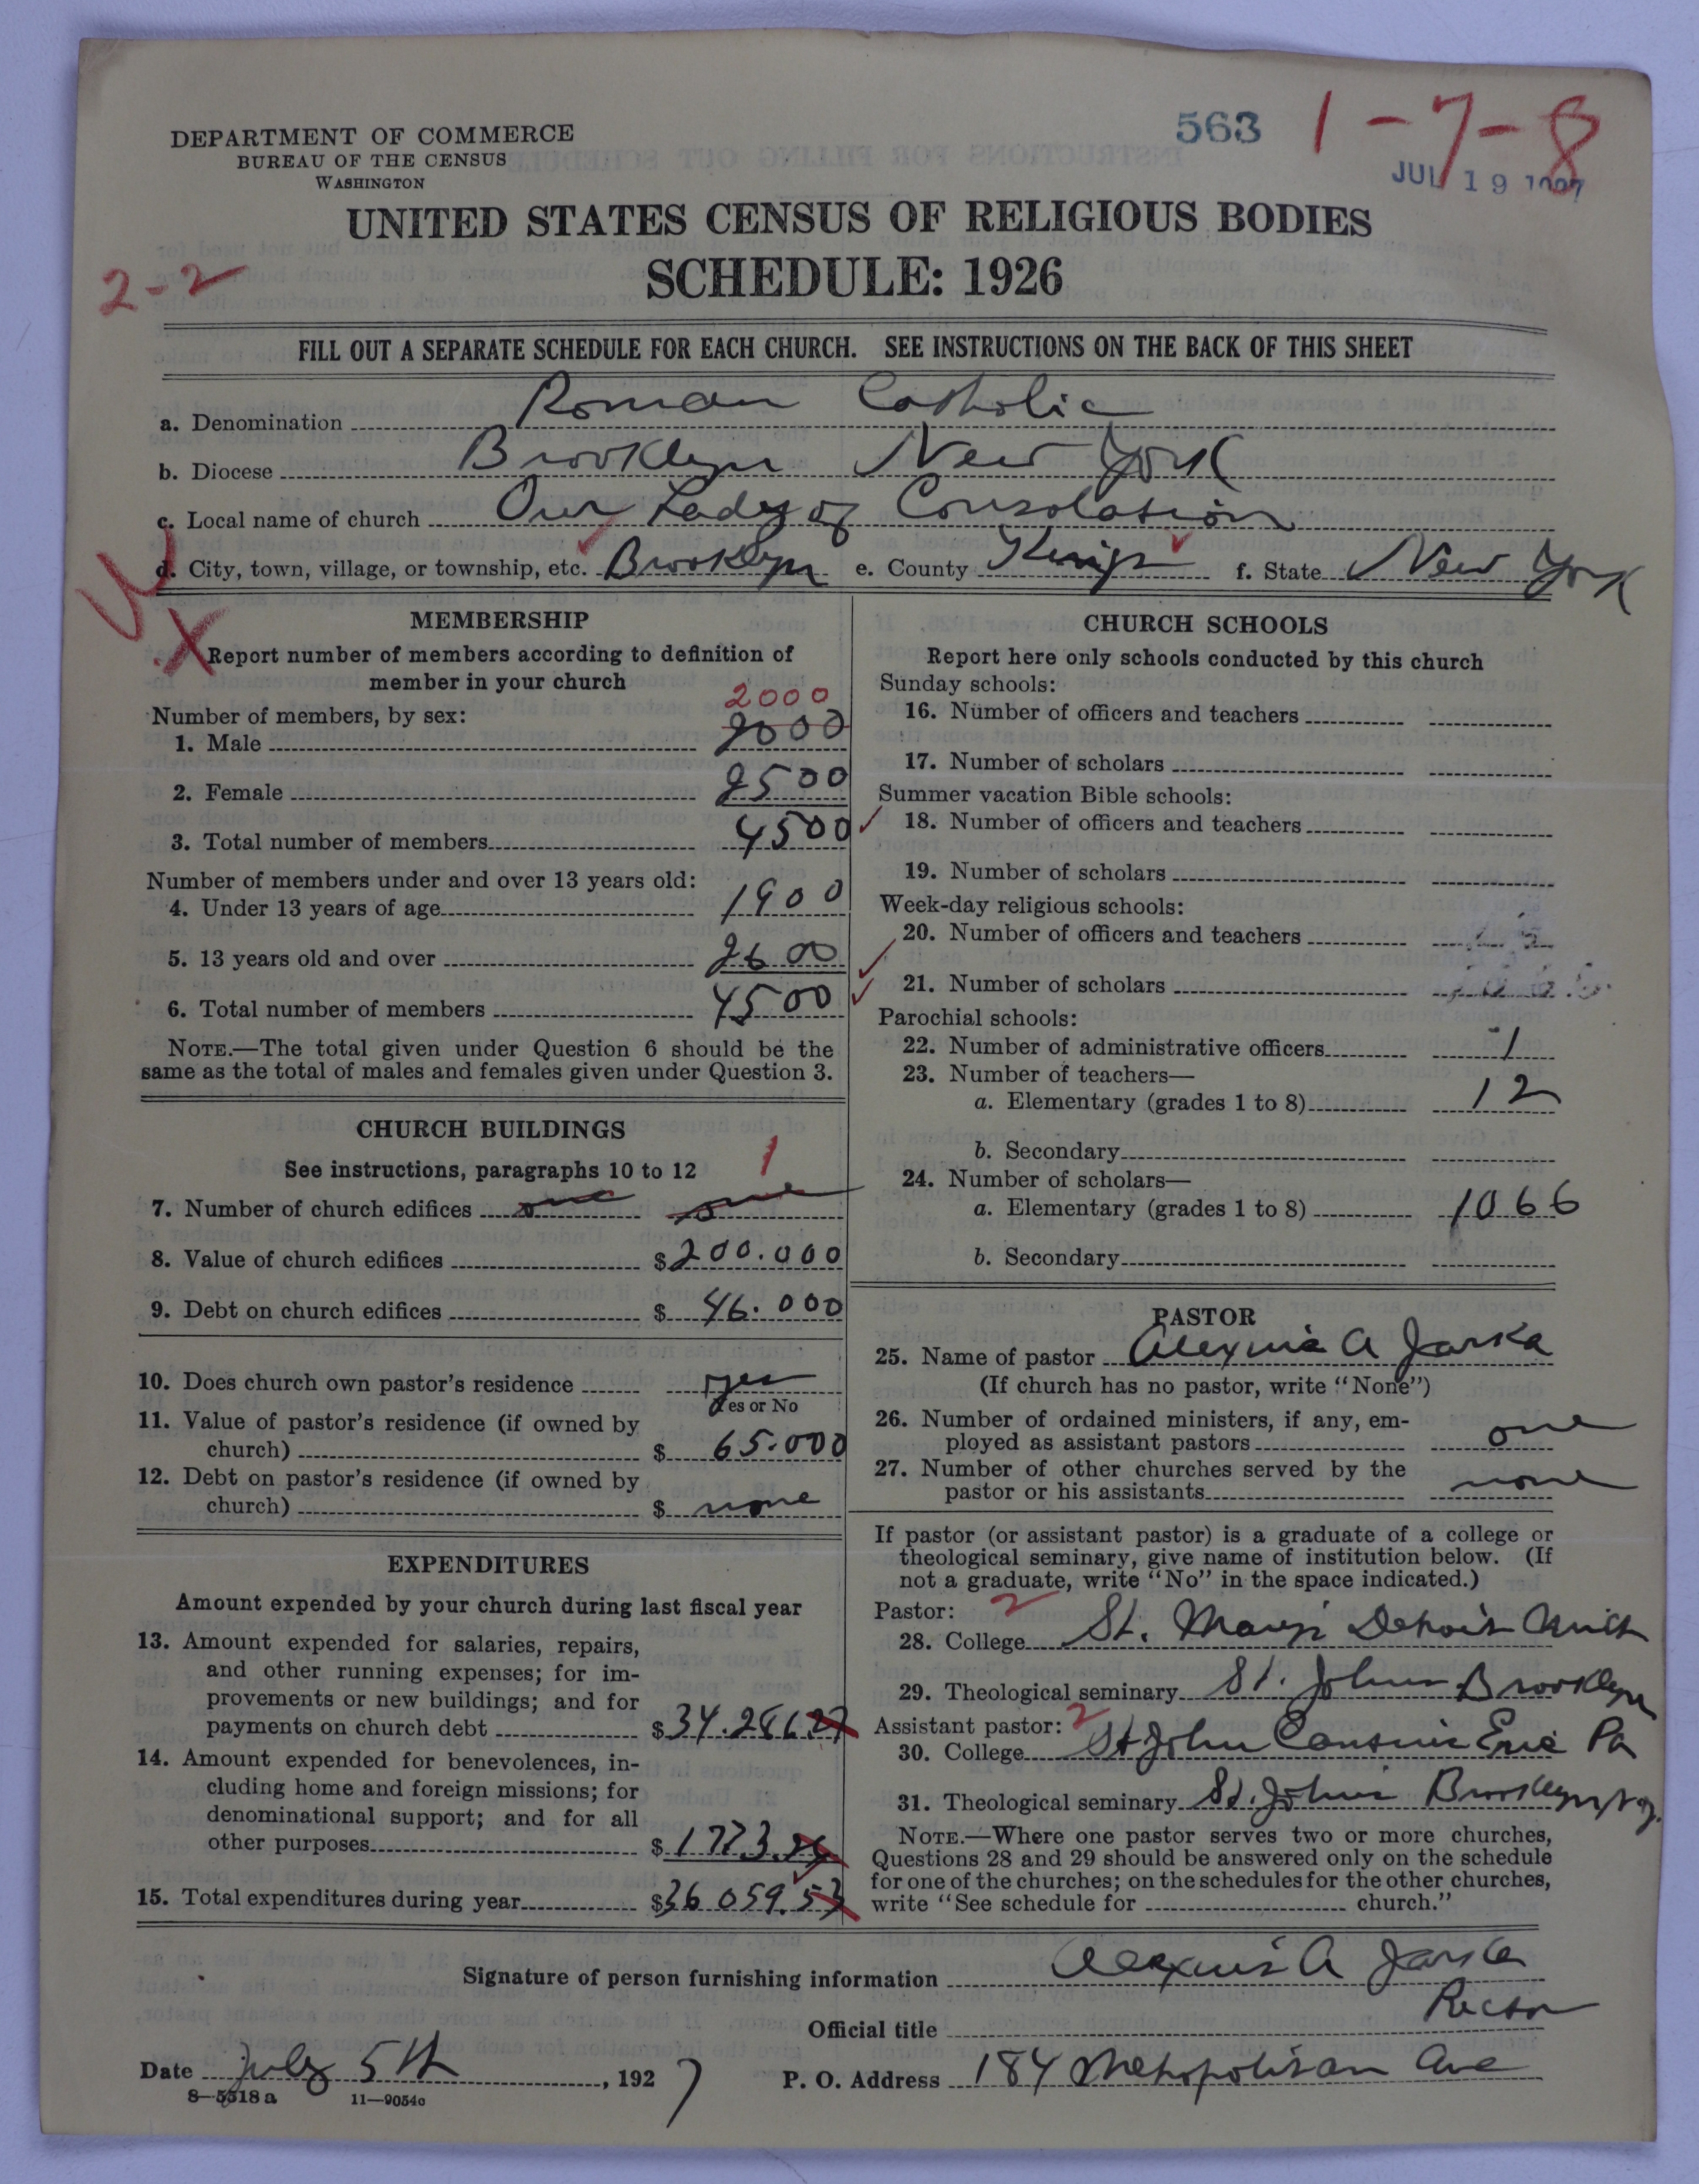 563 1-7-8
DEPARTMENT OF COMMERCE
BUREAU OF THE CENSUS
WASHINGTON
JUL 19 1927
UNITED STATES CENSUS OF RELIGIOUS BODIES
SCHEDULE: 1926
2-2
FILL OUT A SEPARATE SCHEDULE FOR EACH CHURCH. SEE INSTRUCTIONS ON THE BACK OF THIS SHEET
a. Denomination Roman Catholic
b. Diocese Brooklyn New York
c. Local name of church Our Lady of Consolation
d. City, town, village, or township, etc. Brooklyn e. County Kings f. State New York
MEMBERSHIP
X Report number of members according to definition of
member in your church
2000
Number of members, by sex:
1. Male 2000
2. Female 2500
3. Total number of members 4500
Number of members under and over 13 years old:
4. Under 13 years of age 1900
5. 13 years old and over 2600
6. Total number of members 4500
NOTE.—The total given under Question 6 should be the
same as the total of males and females given under Question 3.
CHURCH BUILDINGS
See instructions, paragraphs 10 to 12 1
7. Number of church edifices one one
8. Value of church edifices $200.000
9. Debt on church edifices $46.000
10. Does church own pastor's residence yes
Yes or No
11. Value of pastor's residence (if owned by
church) $65.000
12. Debt on pastor's residence (if owned by
church) $none
EXPENDITURES
Amount expended by your church during last fiscal year
13. Amount expended for salaries, repairs,
and other running expenses; for im-
provements or new buildings; and for
payments on church debt $34.286.27
14. Amount expended for benevolences, in-
cluding home and foreign missions; for
denominational support; and for all
other purposes $1773.
15. Total expenditures during year $36 059.53
CHURCH SCHOOLS
Report here only schools conducted by this church
Sunday schools:
16. Number of officers and teachers
17. Number of scholars
Summer vacation Bible schools:
18. Number of officers and teachers
19. Number of scholars
Week-day religious schools:
20. Number of officers and teachers
21. Number of scholars
Parochial schools:
22. Number of administrative officers 1
23. Number of teachers—
a. Elementary (grades 1 to 8) 12
b. Secondary
24. Number of scholars—
a. Elementary (grades 1 to 8) 1066
b. Secondary
PASTOR
25. Name of pastor A Jarka
(If church has no pastor, write "None")
26. Number of ordained ministers, if any, em-
ployed as assistant pastors one
27. Number of other churches served by the
pastor or his assistants none
If pastor (or assistant pastor) is a graduate of a college or
theological seminary, give name of institution below. (If
not a graduate, write "No" in the space indicated.)
Pastor: 2
28. College St. Mary's Detroit Mich
29. Theological seminary St. Johns Brooklyn
Assistant pastor: 2
30. College St John Erie Pa
31. Theological seminary St. Johns Brooklyn N.Y.
NOTE.—Where one pastor serves two or more churches,
Questions 28 and 29 should be answered only on the schedule
for one of the churches; on the schedules for the other churches,
write "See schedule for church."
Signature of person furnishing information A Jarka
Official title Rector
Date July 5th, 1927 P. O. Address 184 Metropolitan Ave
8—5518 a 11—9054c